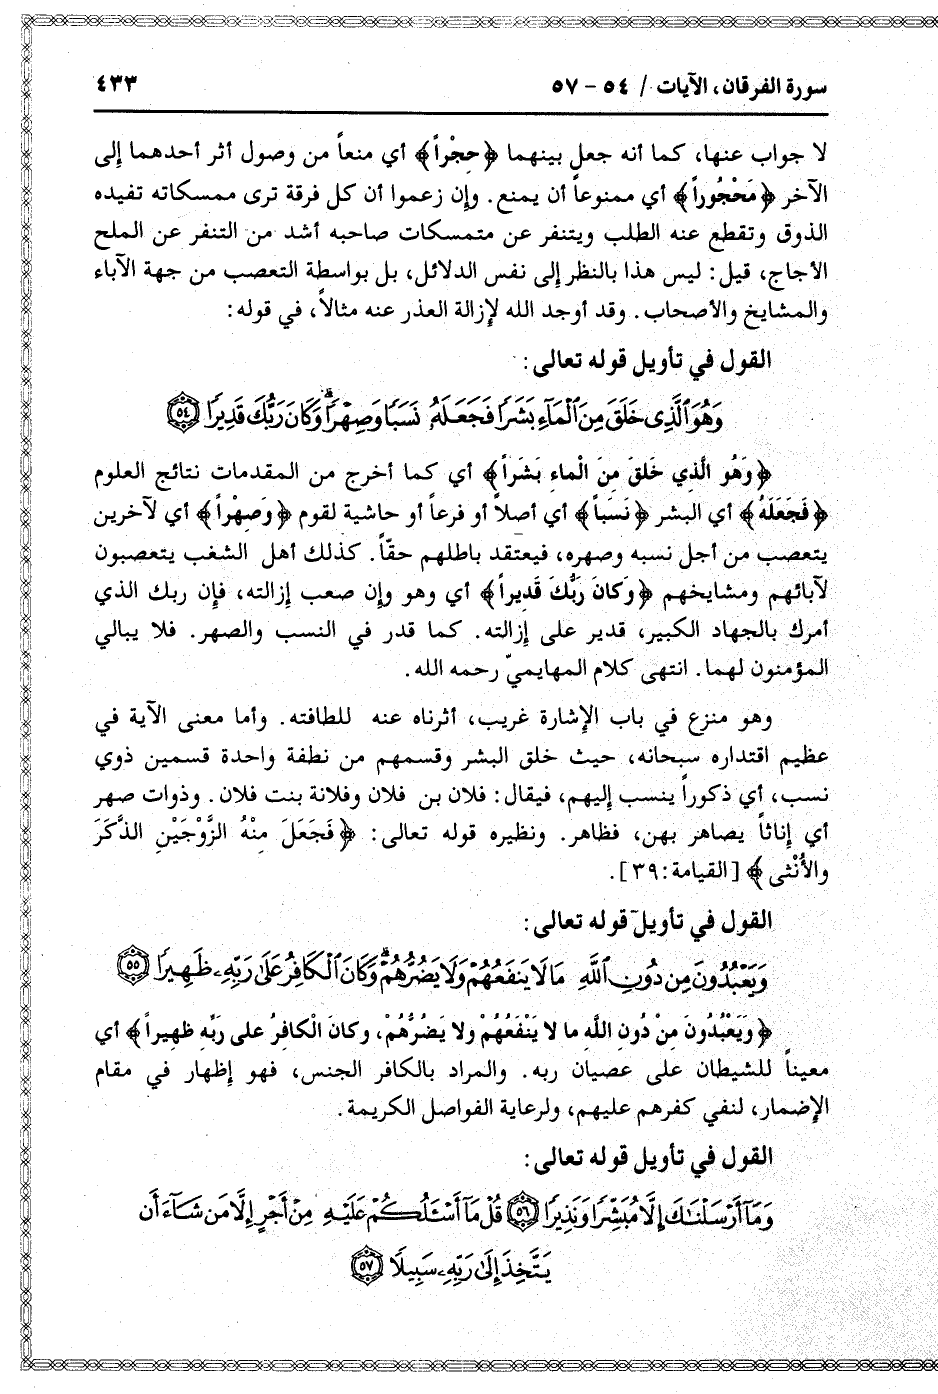 سورة الفرقان، الآيات / ٥٤ - ٥٧
٤٣٣
لا جواب عنها، كما أنه جعل بينهما ﴿حِجْراً﴾ أي منعاً من وصول أثر أحدهما إلى
الآخر ﴿مَحْجُوراً﴾ أي ممنوعاً أن يمنع. وإن زعموا أن كل فرقة ترى ممسكاته تفيده
الذوق وتقطع عنه الطلب ويتنفر عن متمسكات صاحبه أشد من التنفر عن الملح
الأجاج، قيل: ليس هذا بالنظر إلى نفس الدلائل، بل بواسطة التعصب من جهة الآباء
والمشايخ والأصحاب. وقد أوجد الله لإزالة العذر عنه مثالاً، في قوله:
القول في تأويل قوله تعالى:
وَهُوَ ٱلَّذِى خَلَقَ مِنَ ٱلْمَآءِ بَشَرًا فَجَعَلَهُۥ نَسَبًا وَصِهْرًا ۗ وَكَانَ رَبُّكَ قَدِيرًا ٥٤
﴿وَهُو الَّذي خَلقَ مِنَ الْماءِ بَشَراً﴾ أي كما أخرج من المقدمات نتائج العلوم
﴿فَجَعَلَهُ﴾ أي البشر ﴿نَسَباً﴾ أي أصلاً أو فرعاً أو حاشية لقوم ﴿وَصهْراً﴾ أي لآخرين
يتعصب من أجل نسبه وصهره، فيعتقد باطلهم حقّاً. كذلك أهل الشغب يتعصبون
لآبائهم ومشايخهم ﴿وَكانَ رَبُّكَ قَديراً﴾ أي وهو وإن صعب إزالته، فإن ربك الذي
أمرك بالجهاد الكبير، قدير على إزالته. كما قدر في النسب والصهر. فلا يبالي
المؤمنون لهما. انتهى كلام المهايميّ رحمه الله.
وهو منزع في باب الإشارة غريب، أثرناه عنه للطافته. وأما معنى الآية في
عظيم اقتداره سبحانه، حيث خلق البشر وقسمهم من نطفة واحدة قسمين ذوي
نسب، أي ذكوراً ينسب إليهم، فيقال: فلان بن فلان وفلانة بنت فلان. وذوات صهر
أي إناثاً يصاهر بهن، فظاهر. ونظيره قوله تعالى: ﴿فَجَعَلَ مِنْهُ الزَّوْجَيْنِ الذَّكَرَ
والأُنْثى﴾ [القيامة: ٣٩].
القول في تأويل قوله تعالى:
وَيَعْبُدُونَ مِن دُونِ ٱللَّهِ مَا لَا يَنفَعُهُمْ وَلَا يَضُرُّهُمْ ۗ وَكَانَ ٱلْكَافِرُ عَلَىٰ رَبِّهِۦ ظَهِيرًا ٥٥
﴿وَيَعْبُدُونَ مِنْ دُونِ اللَّه ما لا يَنْفَعُهُمْ ولا يَضُرُّهُمْ، وكانَ الْكافِرُ على رَبِّهِ ظهيراً﴾ أي
معيناً للشيطان على عصيان ربه. والمراد بالكافر الجنس، فهو إظهار في مقام
الإضمار، لنفي كفرهم عليهم، ولرعاية الفواصل الكريمة.
القول في تأويل قوله تعالى:
وَمَآ أَرْسَلْنَٰكَ إِلَّا مُبَشِّرًا وَنَذِيرًا ٥٦ قُلْ مَآ أَسْـَٔلُكُمْ عَلَيْهِ مِنْ أَجْرٍ إِلَّا مَن شَآءَ أَن
يَتَّخِذَ إِلَىٰ رَبِّهِۦ سَبِيلًا ٥٧